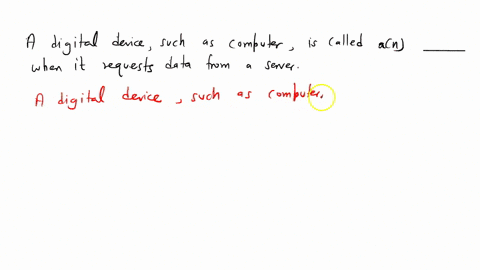 A digital device, such as computer, is called a(n) ______
when it requests data from a server.
A digital device, such as computer,